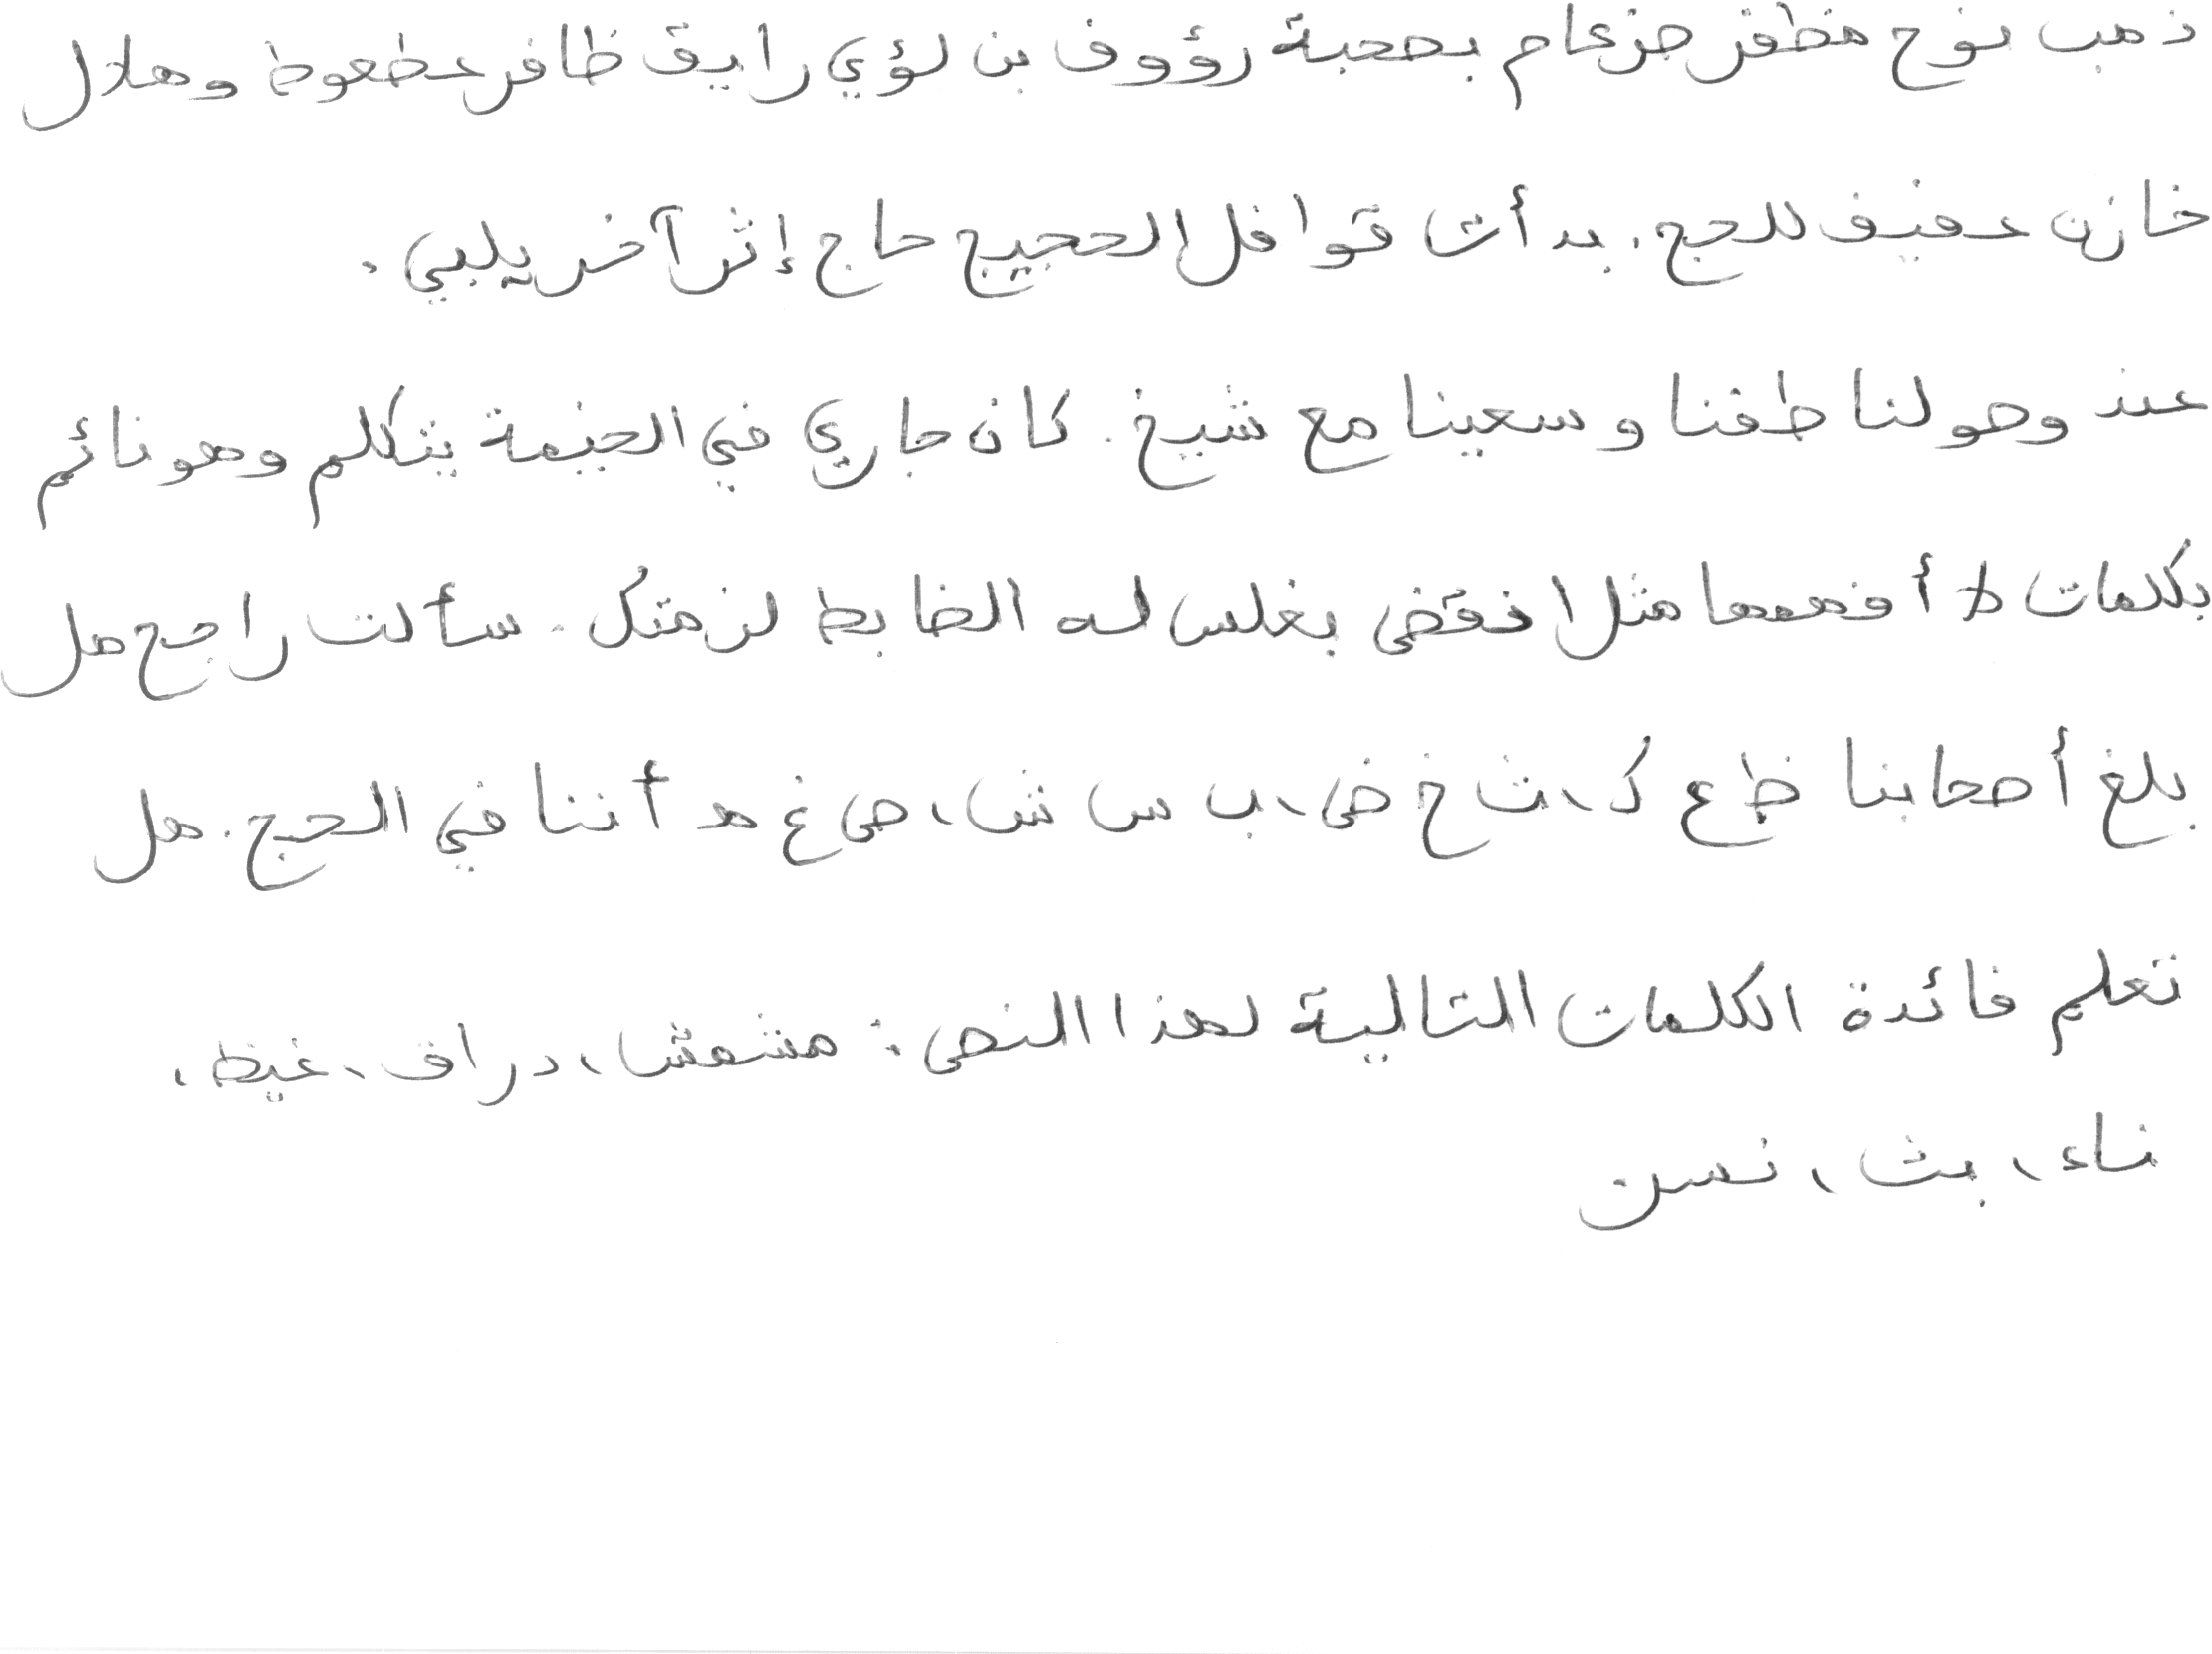 ذهب نوح مظفر ضرغام بصحبة رؤوف بن لؤي رايق ظافر عطعوط وهلال
خازن عفيف للحج. بدأت قوافل الحجيج حاج إثر آخر يلبي.
عند وصولنا طفنا وسعينا مع شيخ. كان جاري في الخيمة يتكلم وهو نائم
بكلمات لا أفهمها مثل انقض بغلس له الضابط لزمتك. سألت راجح هل
بلغ أصحابنا ظ ع ك، ث خ ض، ب س ش، ص غ ه أننا في الحج. هل
تعلم فائدة الكلمات التالية لهذا النص: مشمش، دراق، غيظ،
ناء، بث، نسرن